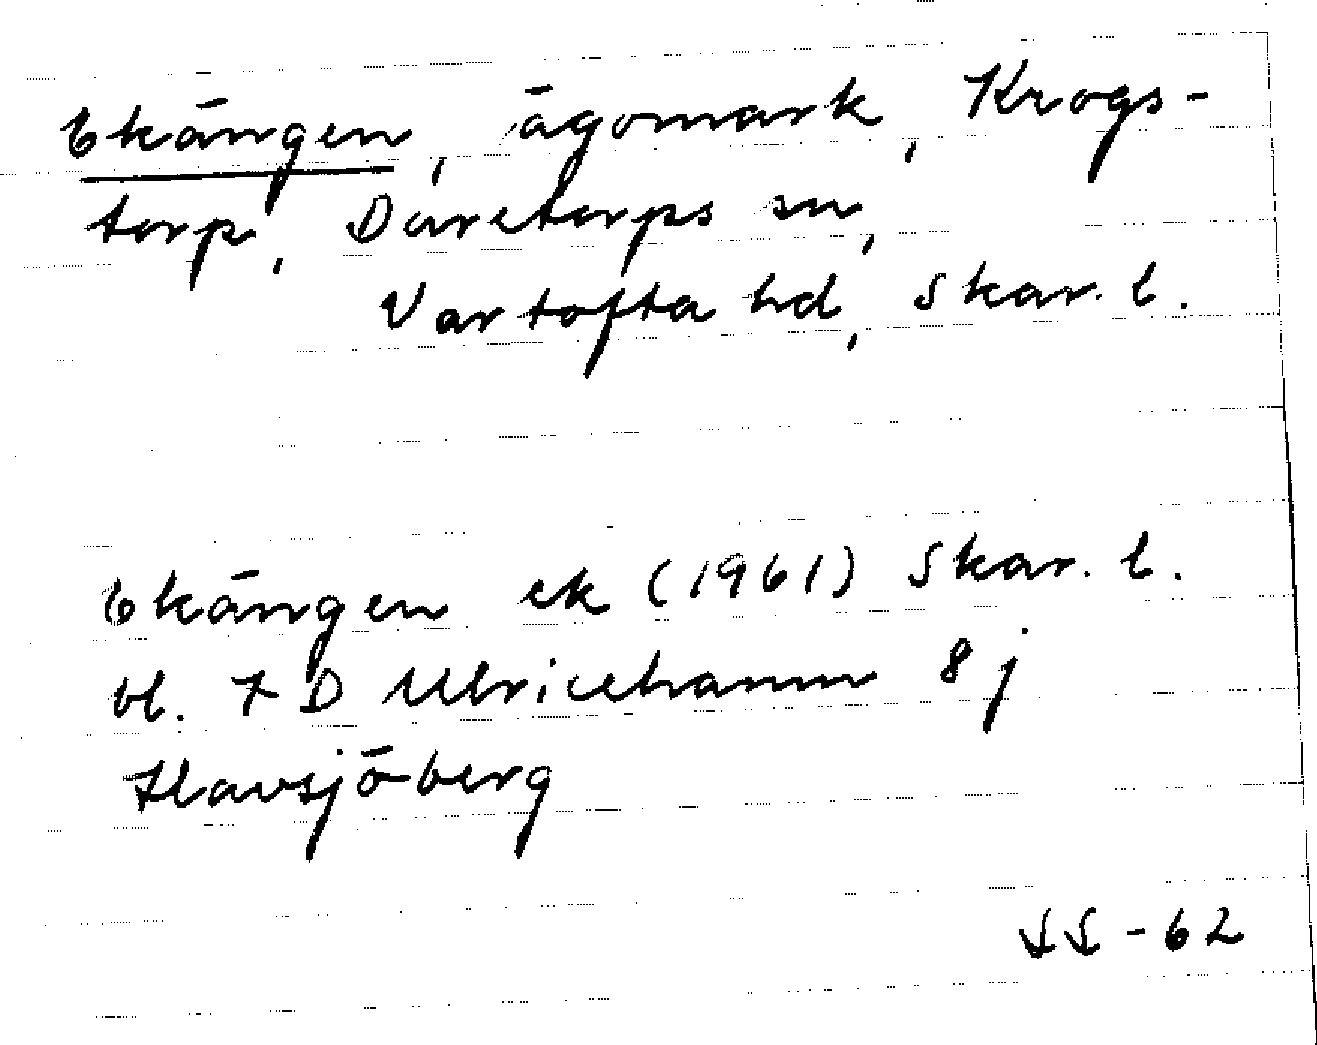 Ekängen, ägomark, Krogs-
torp, Daretorps sn,
Vartofta hd, Skar. l.
Ekängen ek (1961) Skar. l.
bl. 7 D Ulricehamn 8 j
Havsjöberg
SS-62